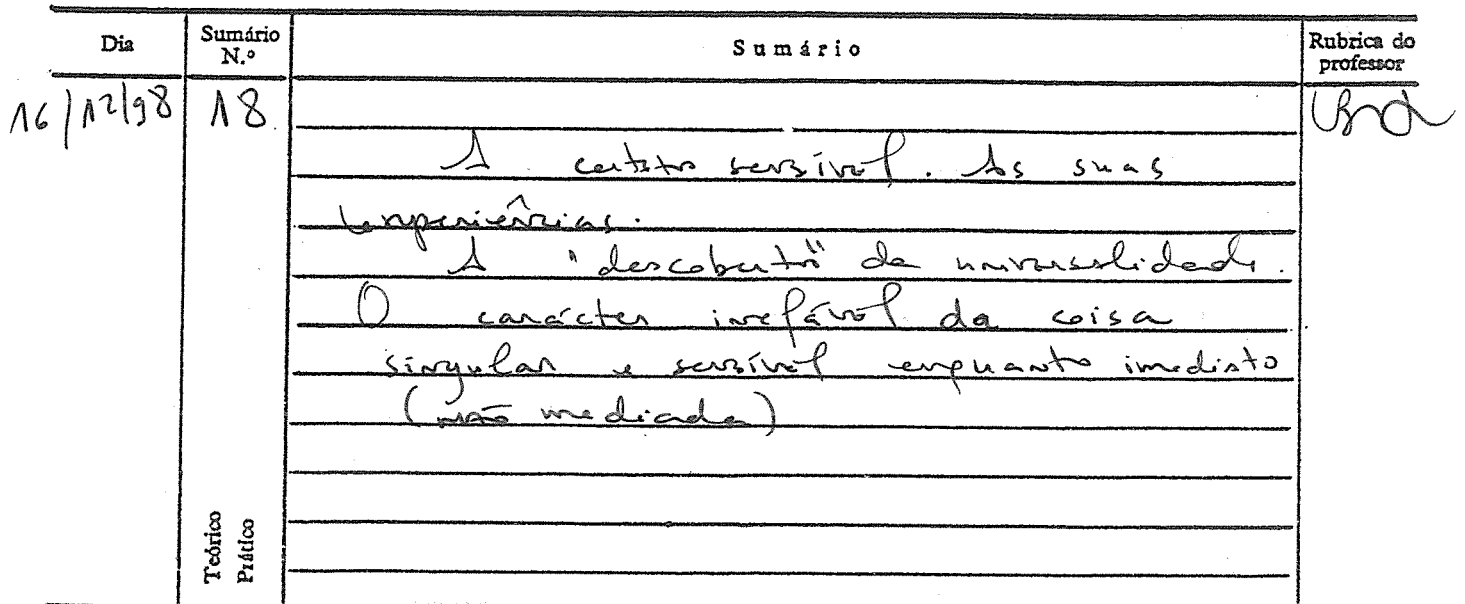 Dia Sumário N.º Sumário Rubrica do professor
16/12/98 18
A certeza sensível. As suas
experiências.
A "descoberta" da universalidade.
O carácter inefável da coisa
singular e sensível enquanto imediata
(não mediada)
Teórico
Prático